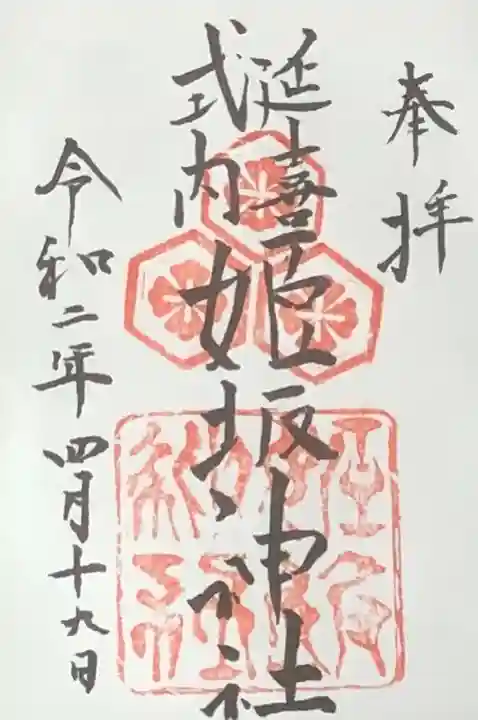 奉拝
延喜
式内
姫坂神社
令和二年四月十九日